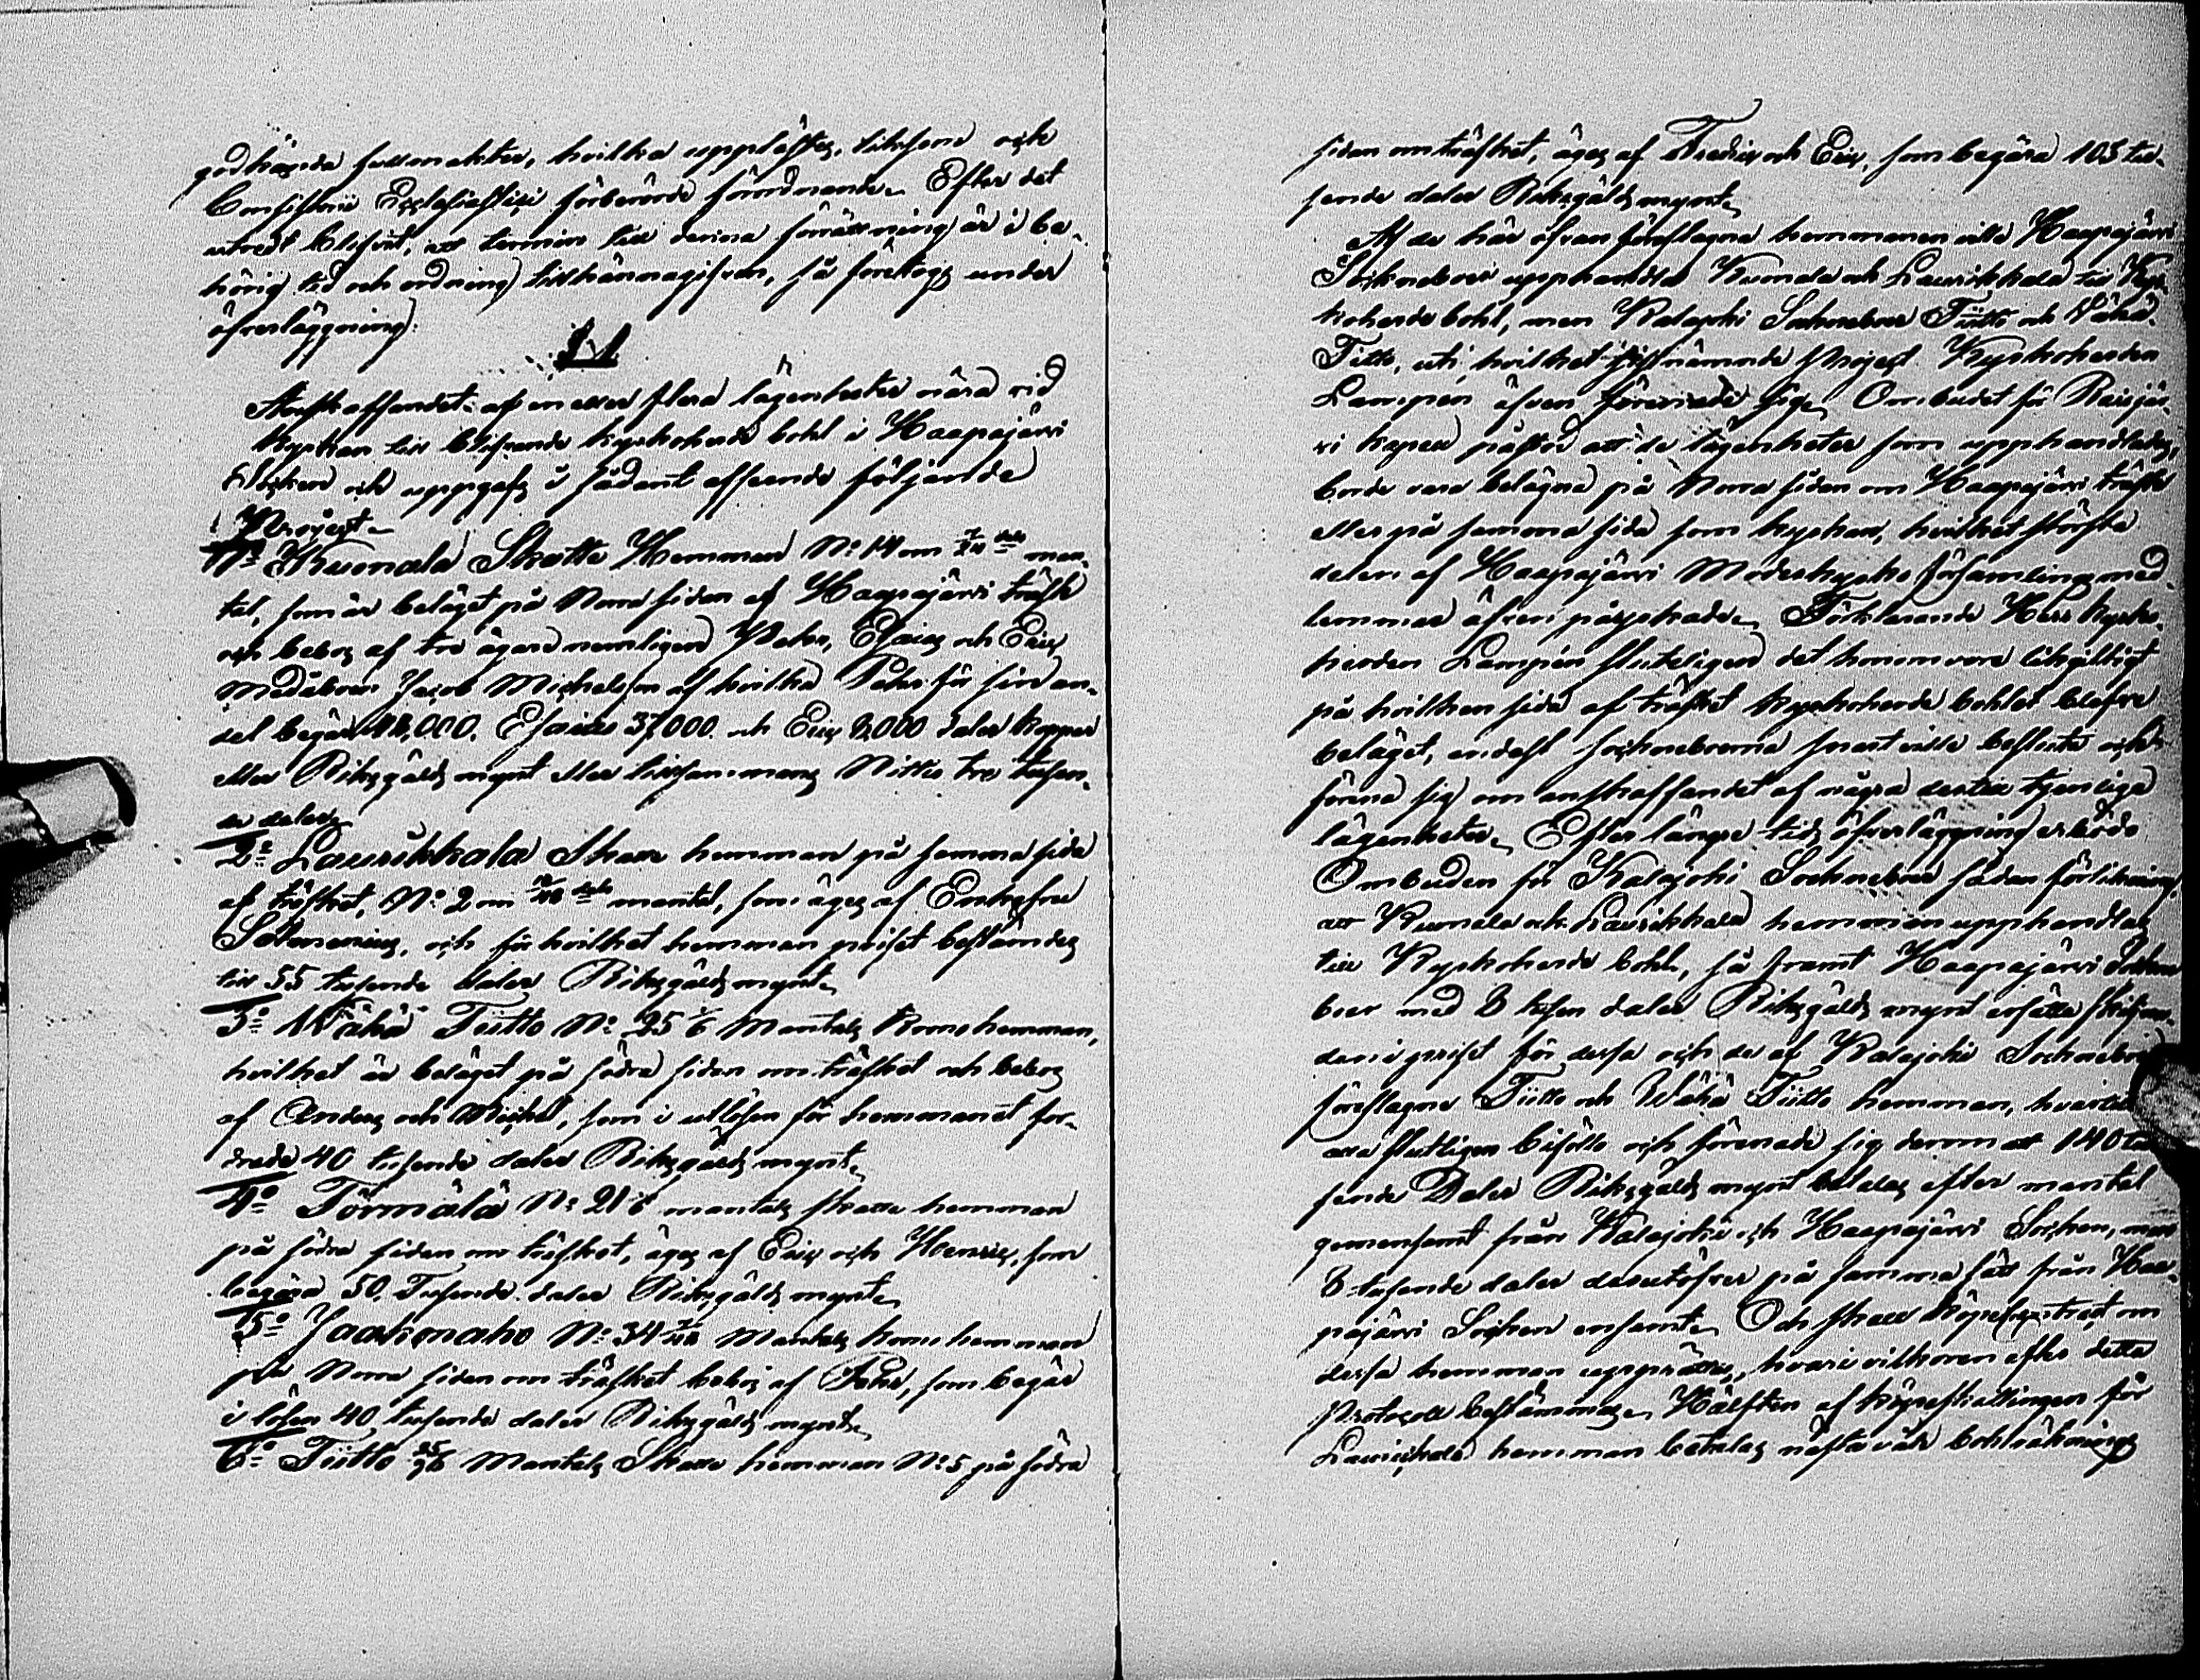 godkända fullmakter, hvilka upplästes, liksom ock
Consistorii Ecclesiastici förberörde förordnande. Efter det
utredt blifvit, att termin till denna förrättning är i be-
hörig tid och ordning tillkännagifven, så företogs under
öfverläggning:
Anskaffandet af en eller flera lägenheter nära vid
kyrkan till blifvande kyrkoherde bohl i Haapajärvi
Socken och uppgafs i sådant afseende följande
Project.
1º Kumala Skatte Hemman Nº 14 om 7/24 dels man-
tal, som är beläget på Norra sidan af Haapajärvi träsk
och bebos af tre ägare nemligen Peter, Esaias och Eric
Jacob Michelsson af hvilka Peter för sin an-
del begär 48,000. Esaias 37,000. och Eric 8,000 daler koppar
eller Riksgälds mynt eller tillsammans Nittio tre tusen-
de daler.
2º Laurikkala Skatte hemman på samma sida
af träsket, Nº 2 om dels mantal, som äges af Enkefru
Salmenius, och för hvilket hemman priset bestämdes
till 55 tusende daler Riksgälds mynt.
3º Wähä Tiitto Nº 25 1/6 Mantals Krono hemman,
hvilket är beläget på södra sidan om träsket och bebos
af Anders och Michel, som i utlösen för hemmanet for-
drade 40 tusende daler Riksgälds mynt.
4º Törmälä Nº 21 1/6 mantals skatte hemman
på södra sidan om träsket, äges af Eric och Henric, som
begära 50. Tusende daler Riksgälds mynt.
5º Jaakonaho Nº 34 7/48 Mantals krono hemman
på Norra sidan om träsket bebos af Peter, som begär
i lösen 40 tusende daler Riksgälds mynt.
6º Tiitto 25/96 Mantals Skatte hemman Nº 5 på södra
sidan om träsket, äges af Fredric och Eric, som begära 105 tu-
sende daler Riksgälds mynt.
Af de här ofvan föreslagna hemmanen ville Haapajärvi
Socknebor upphandla Kumala och Laurikkala till Kyr-
koherde bohl, men Kalajoki Socknebor Tiitto och Wähä-
Tiitto, uti hvilket sistnämnde project Kyrkoherden
Lampén äfven förenade sig. Ombudet för Reisjär-
vi kapell påstod att de lägenheter som upphandlades,
borde vara belägna på Norra sidan om Haapajärvi träsk
eller på samma sida som kyrkan, hvilket största
delen af Haapajärvi Moderkyrko församlings med-
lemmar äfven påyrkade. Förklarande Herr Kyrko-
herden Lampén sluteligen det honom vore likgiltigt
på hvilken sida af träsket kyrkoherde bohlet blefve
beläget, endast socknebor­na snart ville besluta och
förena sig om anskaffandet af några dertill tjenliga
lägenheter. Efter längre tids öfverläggning erböd
Ombuden för Kalajoki Socknebor sådan förlikning,
att Kumala och Laurikkala hemman upphandlas
till Kyrkoherde bohl, så framt Haapajärvi Sockne
boer med 8 tusen daler Riksgälds mynt ersätta skilna-
den i priset för dessa och de af Kalajoki Socknebor
föreslagna Tiitto och Wähä Tiitto hemman, hvartill
alla slutligen biföllo och förenade sig derom att 140 tu-
sende Daler Riksgälds mynt betalas efter mantal
gemensamt från Kalajoki och Haapajärvi Socken, men
8 tusende daler derutöfver på samma sätt från Haa-
pajärvi Socken ensamt. Och skall köpecontract om
dessa hemman upprättas, hvari vilkoren efter detta
Protocoll bestämmas. Hälften af köpeskillingen för
Laurikkala hemman betalas nästa vår